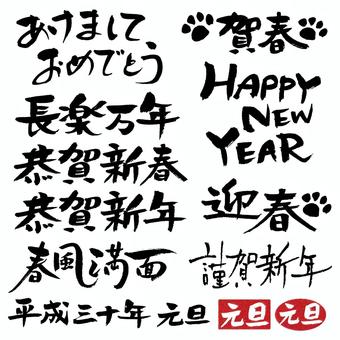 あけまして、
おめでとう
長楽万年
恭賀新春
恭賀新年
春風満面
平成三十年 元旦 元旦 元旦
賀春
HAPPY
NEW
YEAR
迎春
謹賀新年